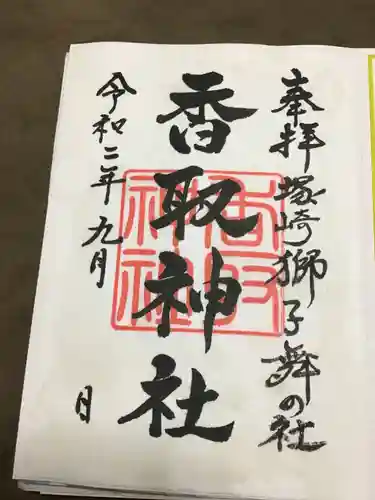 奉拝 塚崎獅子舞の社
香取神社
香取神社
令和二年九月 日